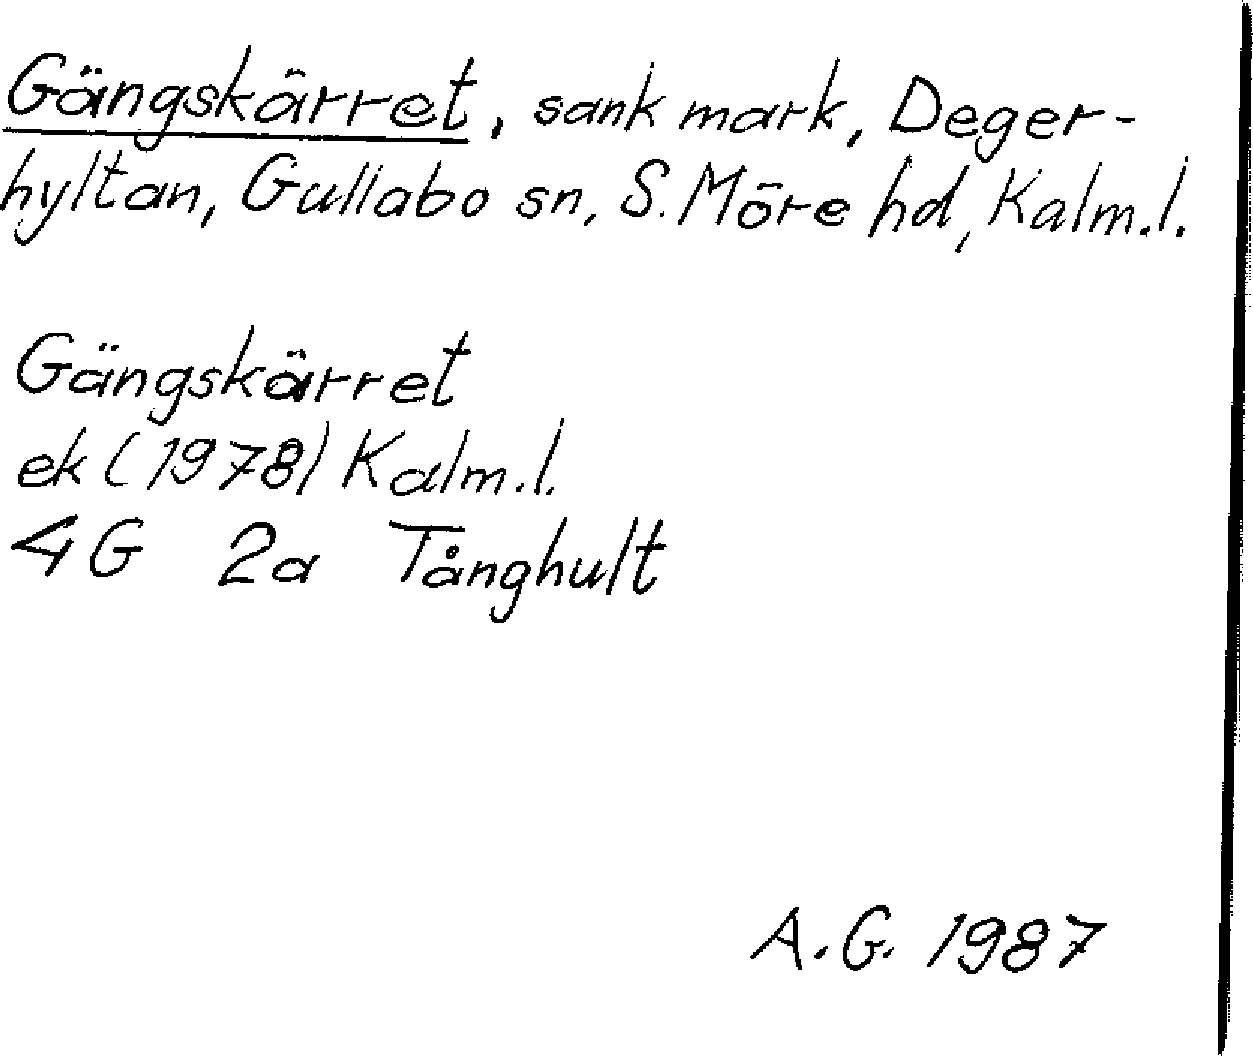 Gängskärret, sank mark, Deger-
hyltan, Gullabo sn, S. Möre hd, Kalm.l.
Gängskärret
ek (1978) Kalm.l.
4G 2a Tånghult
A.G. 1987